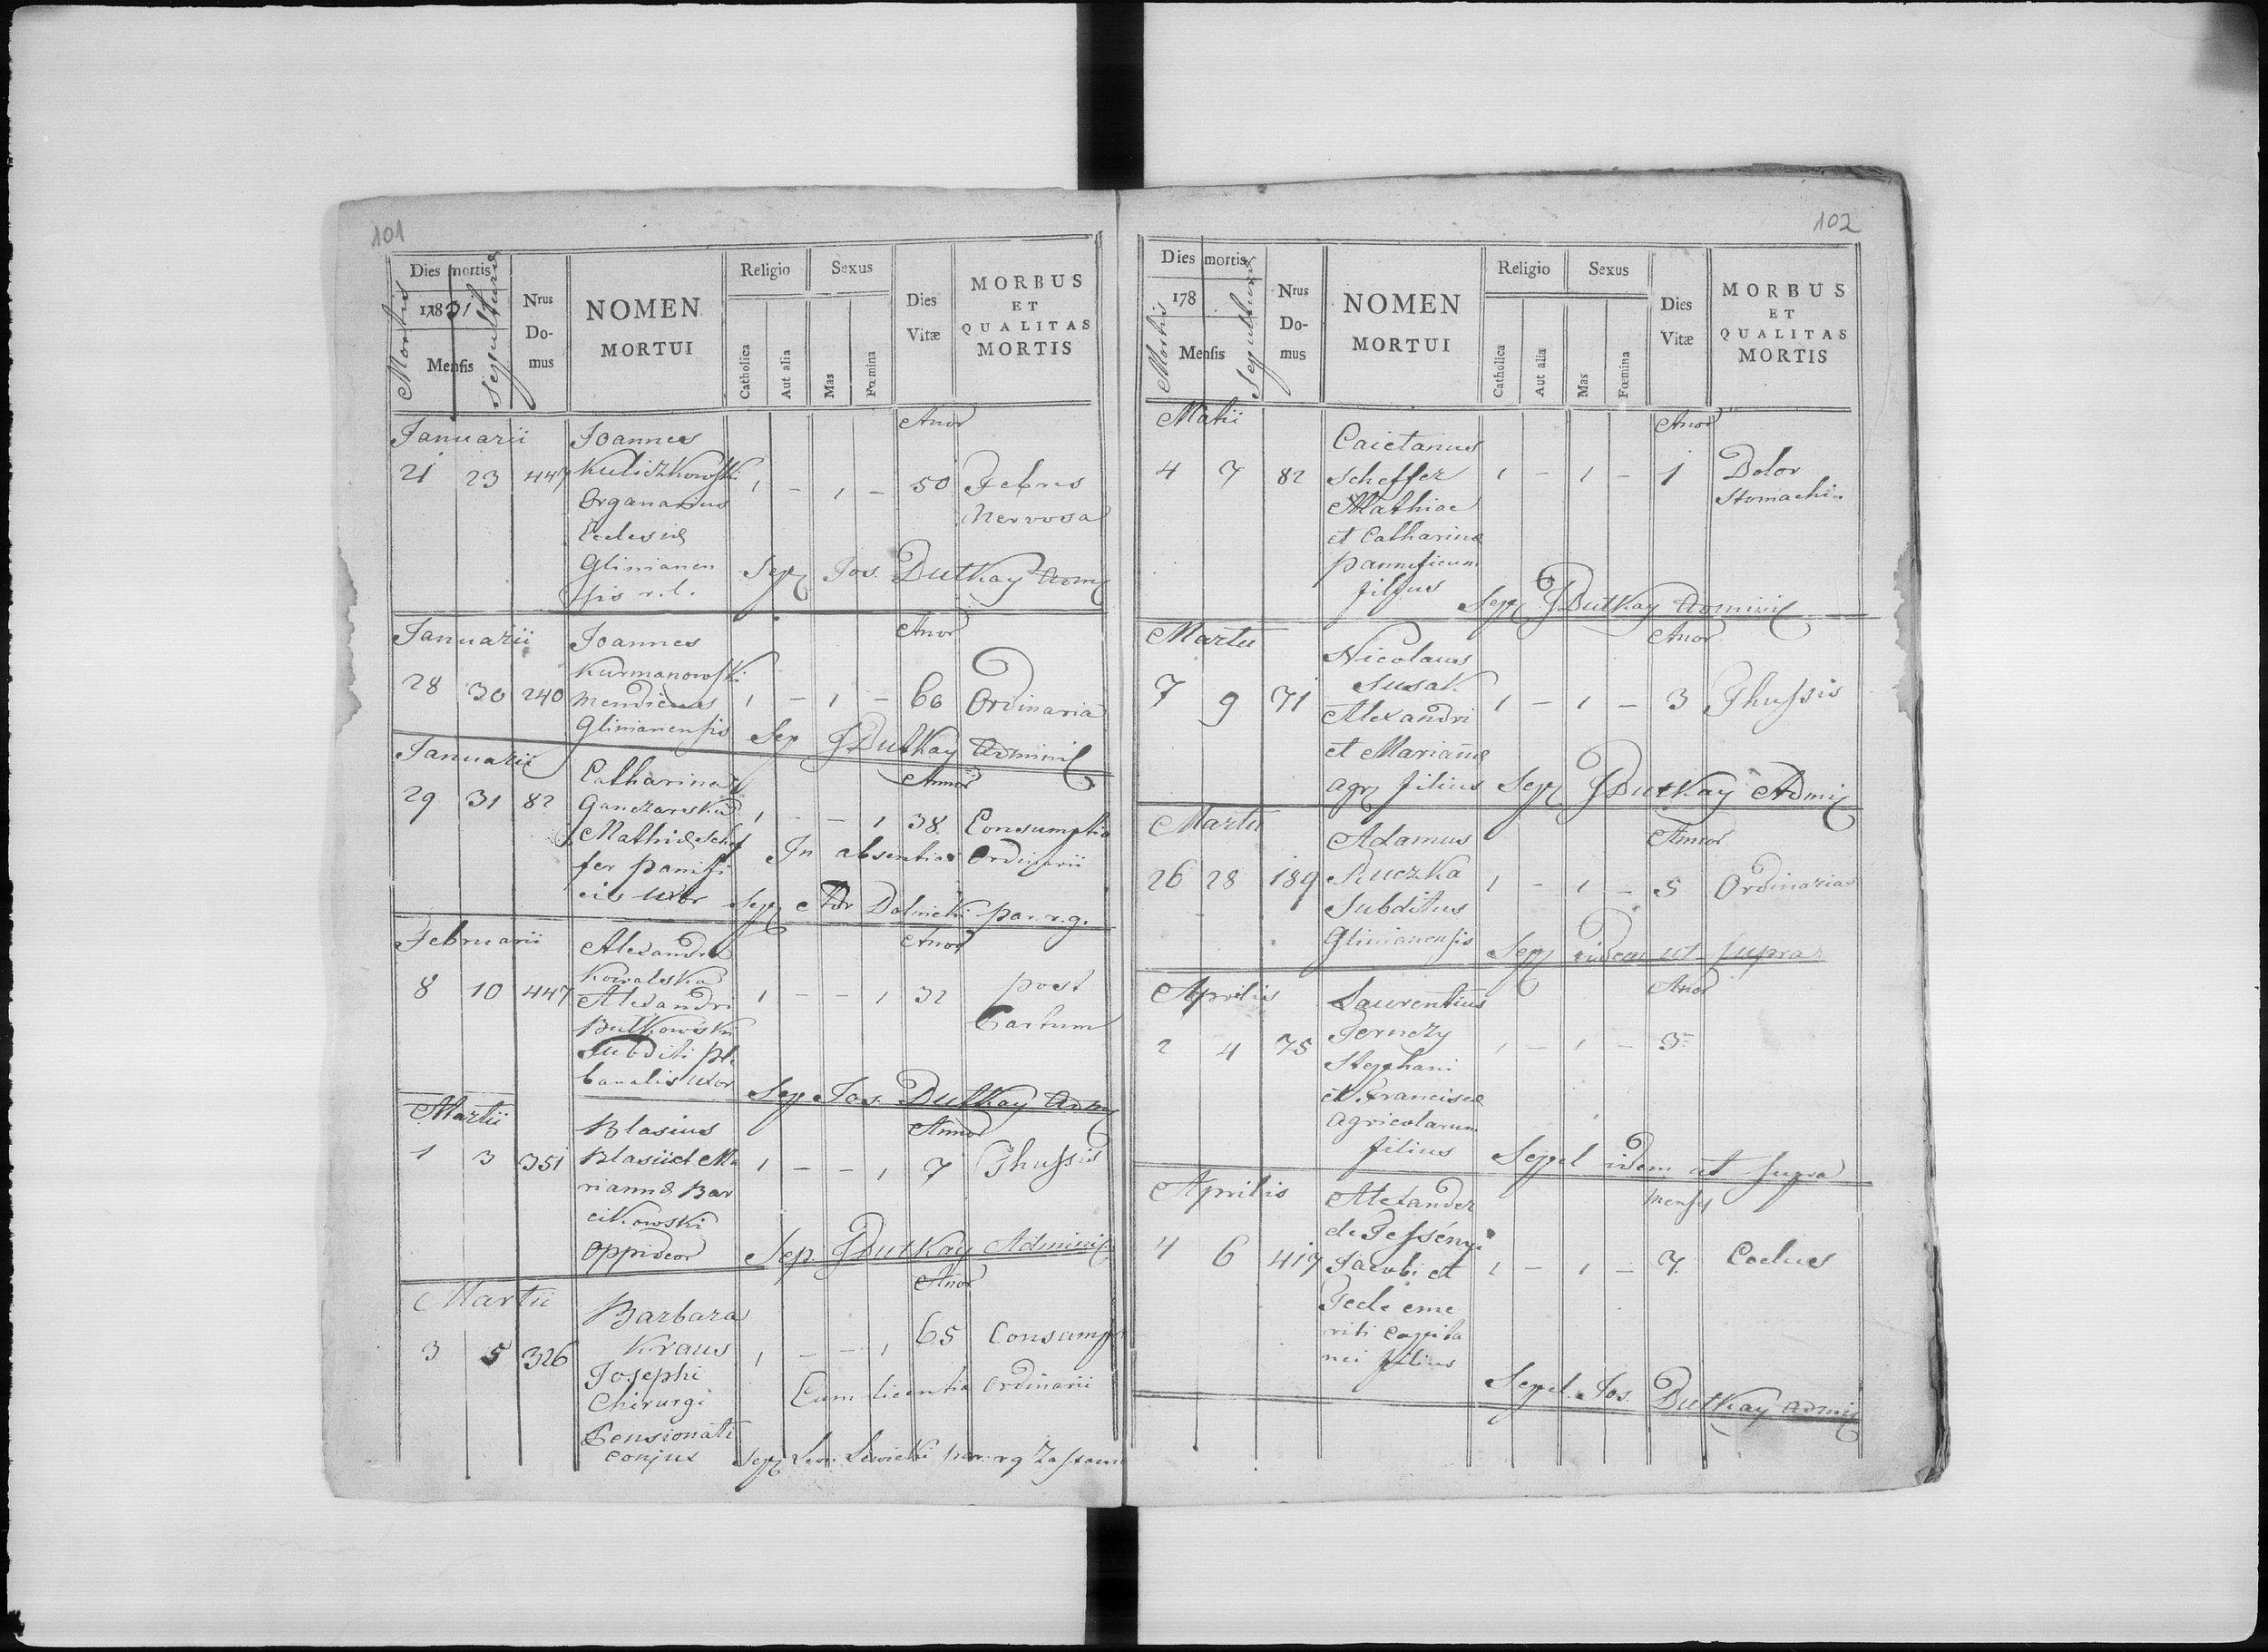 101
Dies mortis
Mortis
Sepulturæ
1831
Mensis
Nrus
Do-
mus
NOMEN
MORTUI
Religio
Catholica
Aut alia
Sexus
Mas
Fœmina
Dies
Vitæ
MORBUS
ET
QUALITAS
MORTIS
Januarii Joannes Anor
21 23 447 Kuliczkowski 1 - 1 - 50 Febris
Organarius Nervosa
Ecclesiæ
Glinianen
sis r. l. Sep Jos. Dutkay Adm
Januarii Joannes Anor
Kurmanowski
28 30 240 Mendicus 1 - 1 - 60 Ordinaria
Glinianensis Sep J Dutkay Admini
Januarii Catharina Annor
29 31 82 Ganczarska 1 - - 1 38 Consumptio
Mathiæ Schef In absentia Ordinarii
fer panifi
cis uxor Sep Dolnicki par. r. g.
Februarii Alexandra Anor
Kowalska
8 10 447 Alexandri 1 - - 1 32 post
Butkowski Partum
Subditi ple
banalis uxor Sep Jos. Dutkay Adm
Martii Blasius Annor
1 3 351 Blasii et Ma 1 - - 1 7 Thussis
riannæ Bar
cikowski
oppidcor Sep. J Dutkay Adminis
Martii Barbara Anor
3 5 326 Kraus 1 - - 1 65 Consump
Josephi
Chirurgi Cum licentia ordinarii
Pensionati
conjux Sep Lewicki par. r g
102
Dies mortis
Mortis
Sepulturæ
178
Mensis
Nrus
Do-
mus
NOMEN
MORTUI
Religio
Catholica
Aut alia
Sexus
Mas
Fœmina
Dies
Vitæ
MORBUS
ET
QUALITAS
MORTIS
Caietanus Anor
4 7 82 Scheffer 1 - 1 - 1 Dolor
Mathiae Stomachi
et Catharinæ
pannificum
filius Sep J Dutkay Admini
Martii Nicolaus Anor
7 9 71 Susak 1 - 1 - 3 Thussis
Alexandri
et Mariannæ
agr filius Sep J Dutkay Admi
Martii Adamus Annor
26 28 189 1 - 1 - 5 Ordinaria
Subditus
Glinianensis Sep idem ut supra
Aprilis Laurentius Anor
2 4 75 1 - 1 - 3
Stephani
et Franciscæ
agricolarum
filius Sepel idem ut supra
Aprilis Alexander mensis
4 6 419 Jacobi et 1 - 1 - 7
eme
riti capita
nei filius
Sepel. Jos. Dutkay Admi